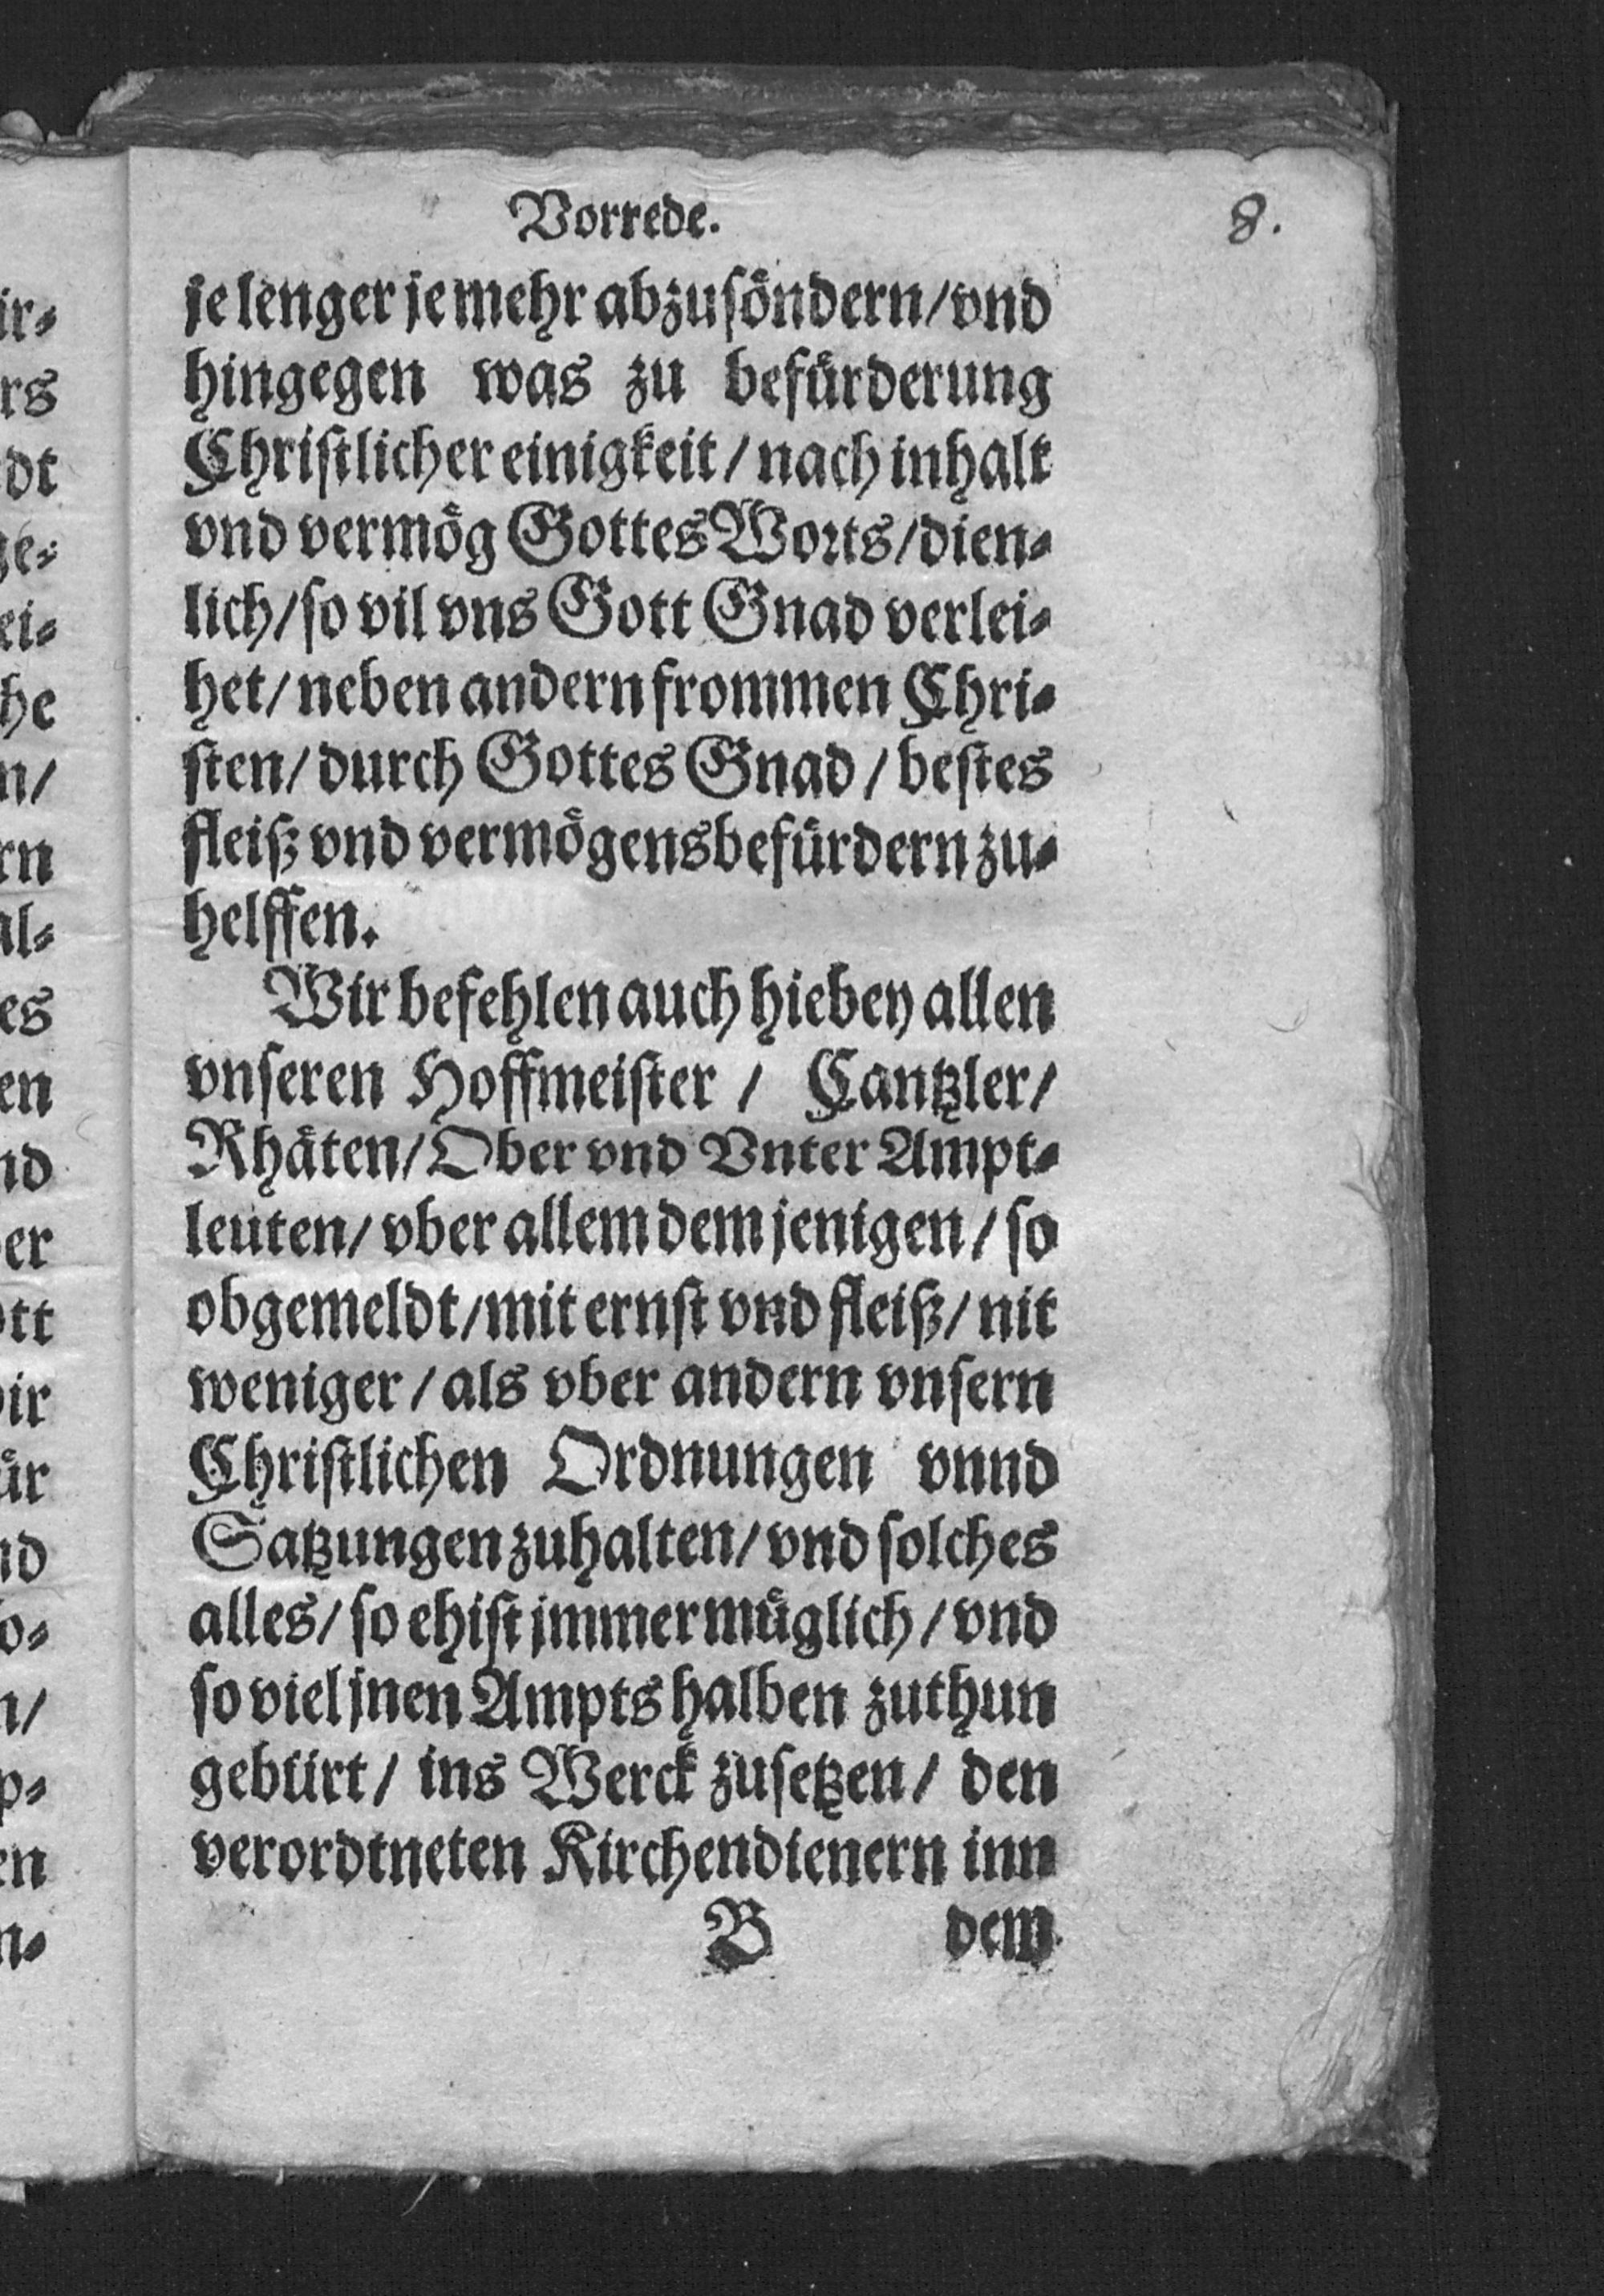 Vorrede.
8.
je lenger je mehr abzusöndern/vnd
hingegen was zu befürderung
Christlicher einigkeit/nach inhalt
vnd vermög Gottes Worts/dien-
lich/so vil vns Gott Gnad verlei-
het/neben andern frommen Chri-
sten/durch Gottes Gnad/bestes
fleiß vnd vermögens befürdern zu-
helffen.
Wir befehlen auch hiebey allen
vnseren Hoffmeister / Cantzler/
Rhäten/Ober vnd Vnter Ampt-
leuten/vber allem dem jenigen/so
obgemeldt/mit ernst vnd fleiß/nit
weniger/als vber andern vnsern
Christlichen Ordnungen vnnd
Satzungen zuhalten/vnd solches
alles/so ehist jmmer müglich/vnd
so viel jnen Ampts halben zuthun
gebürt/ ins Werck zusetzen/ den
verordtneten Kirchendienern inn
B dem